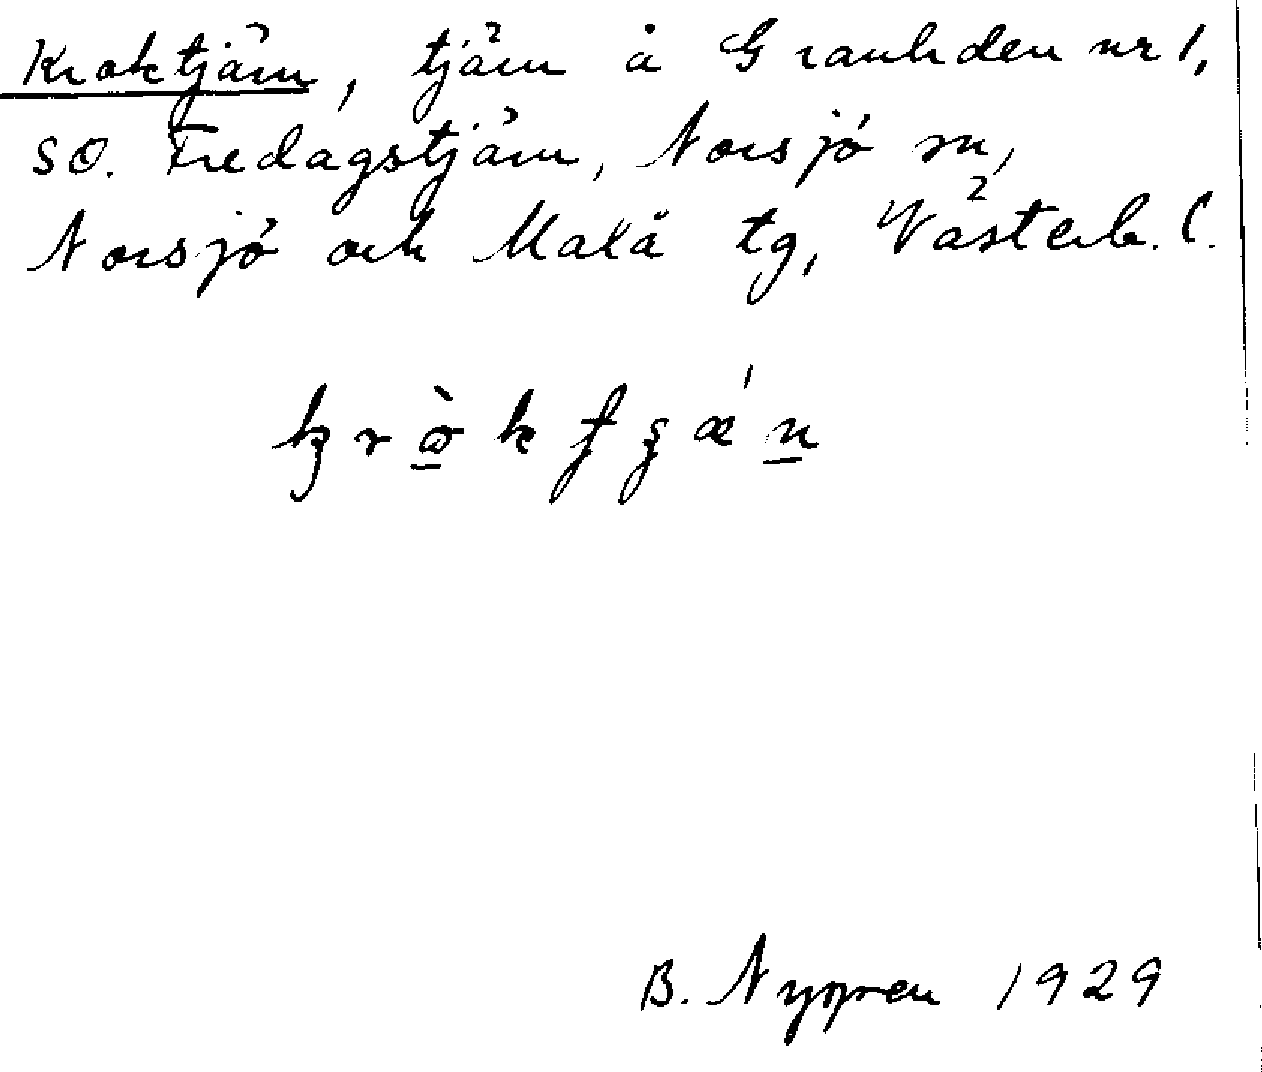 Kroktjärn, tjärn å Granliden nr 1,
SO. Fredagstjärn, Norsjö sn,
Norsjö och Malå tg, Västerb. l.
B. Nygren 1929